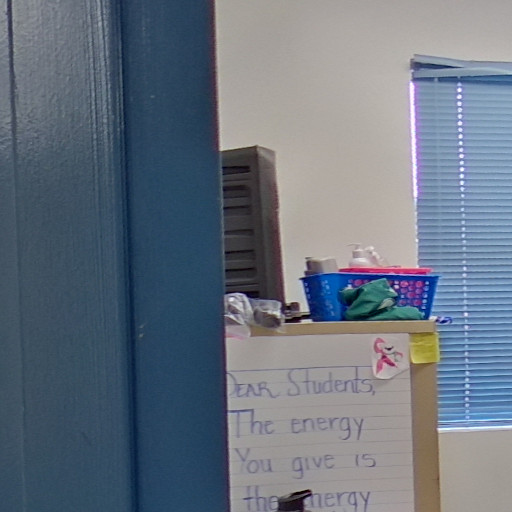 Dear Students,
The energy
You give is
the energy